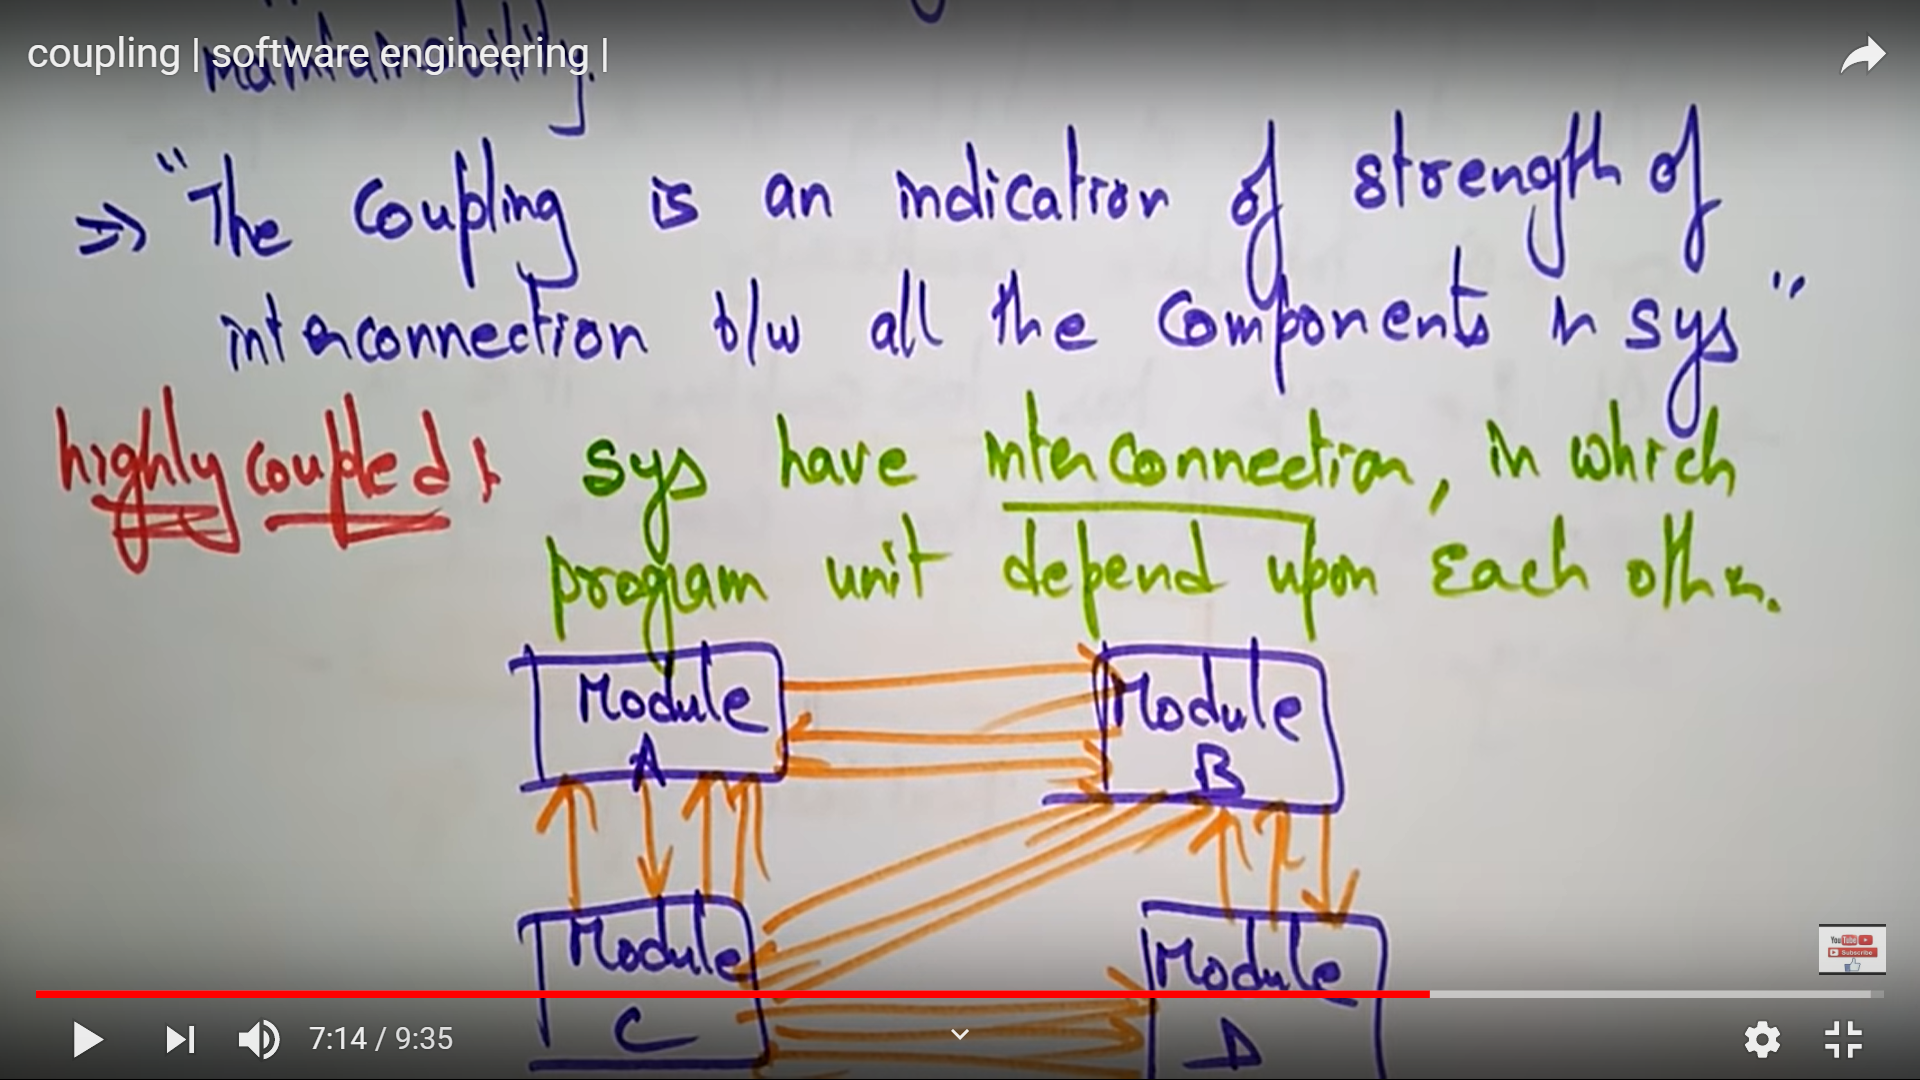 coupling | software engineering |
maintainability.
⇒ "The Coupling is an indication of strength of
interconnection b/w all the components in sys"
highly coupled : sys have interconnection, in which
program unit depend upon each other.
Module
A
Module
B
Module
C
Module
D
YouTube
Subscribe
7:14 / 9:35